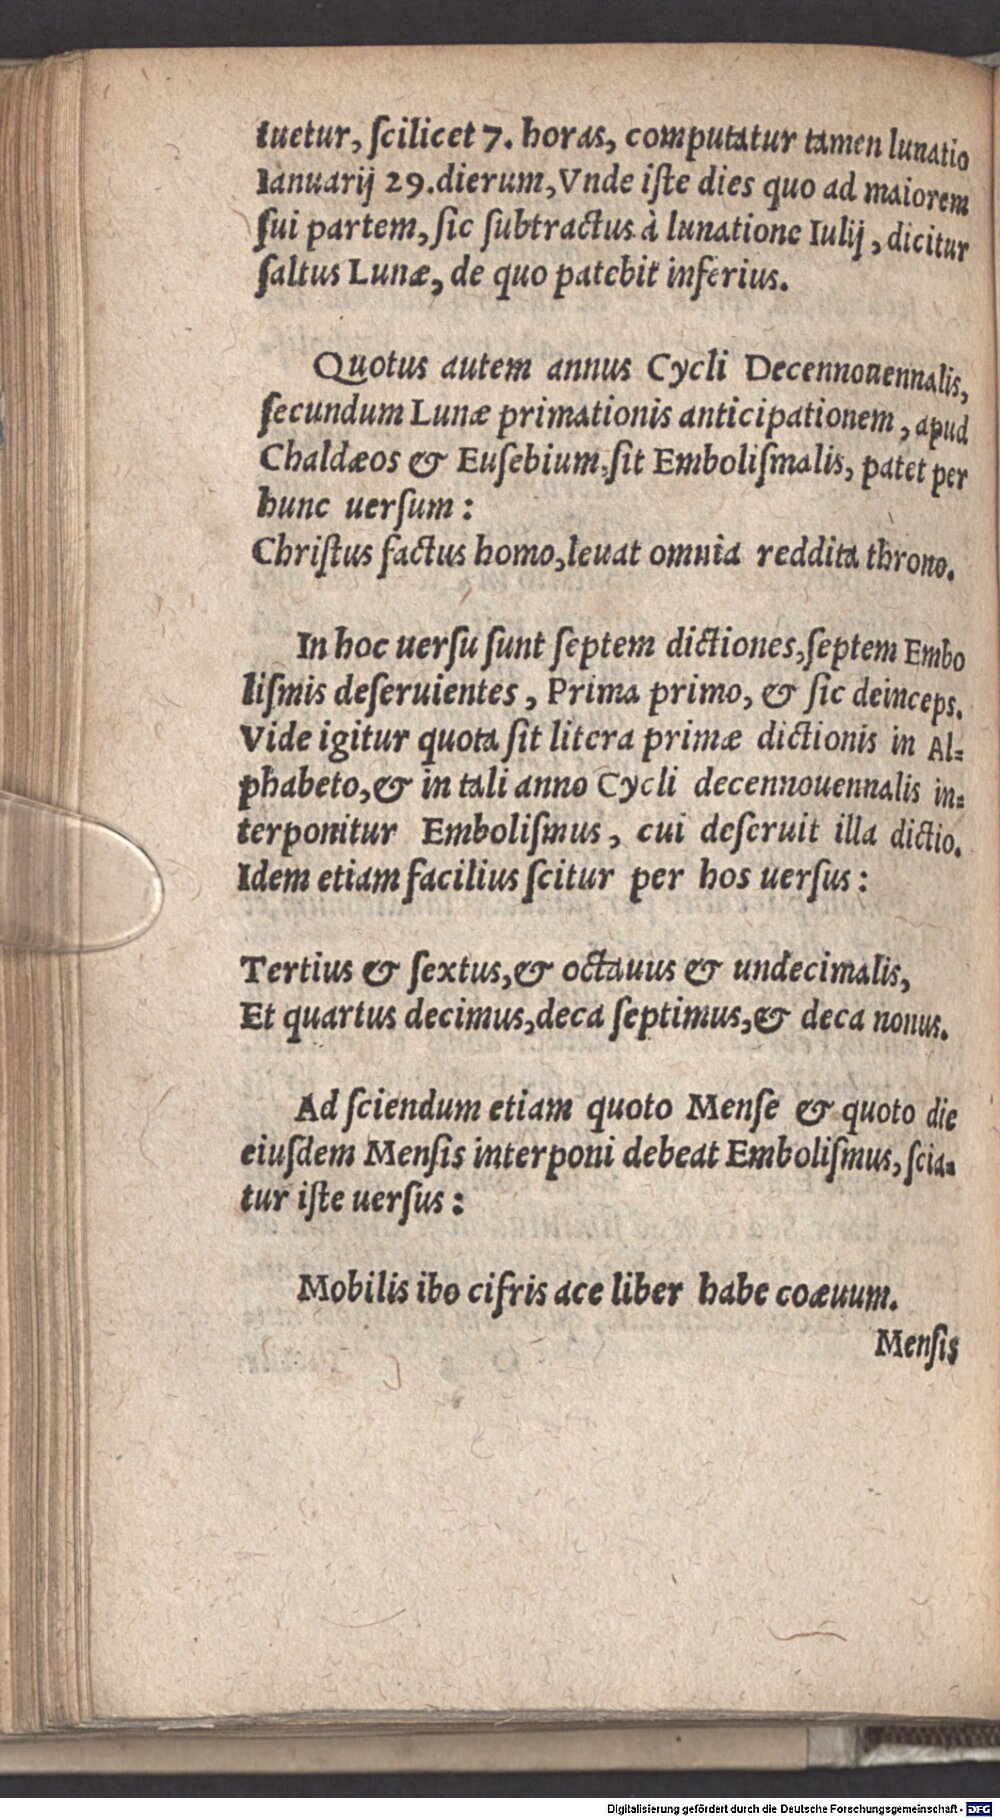 tuetur, ſcilicet 7. horas, computatur tamen lunatio
Ianuarij 29. dierum, Vnde iſte dies quo ad maiorem
ſui partem, ſic ſubtractus à lunatione Iulij, dicitur
ſaltus Lunæ, de quo patebit inferius.
Quotus autem annus Cycli Decennouennalis,
ſecundum Lunæ primationis anticipationem, apud
Chaldæos & Euſebium, ſit Emboliſmalis, patet per
hunc uerſum:
Chriſtus factus homo, leuat omnia reddita throno.
In hoc uerſu ſunt ſeptem dictiones, ſeptem Embo
liſmis deſeruientes, Prima primo, & ſic deinceps.
Vide igitur quota ſit litera primæ dictionis in Al=
phabeto, & in tali anno Cycli decennouennalis in=
terponitur Emboliſmus, cui deſeruit illa dictio.
Idem etiam facilius ſcitur per hos uerſus:
Tertius & ſextus, & octauus & undecimalis,
Et quartus decimus, deca ſeptimus, & deca nonus.
Ad ſciendum etiam quoto Menſe & quoto die
eiuſdem Menſis interponi debeat Emboliſmus, ſcia=
tur iſte uerſus:
Mobilis ibo cifris ace liber habe coæuum.
Menſis
Digitalisierung gefördert durch die Deutsche Forschungsgemeinschaft - DFG